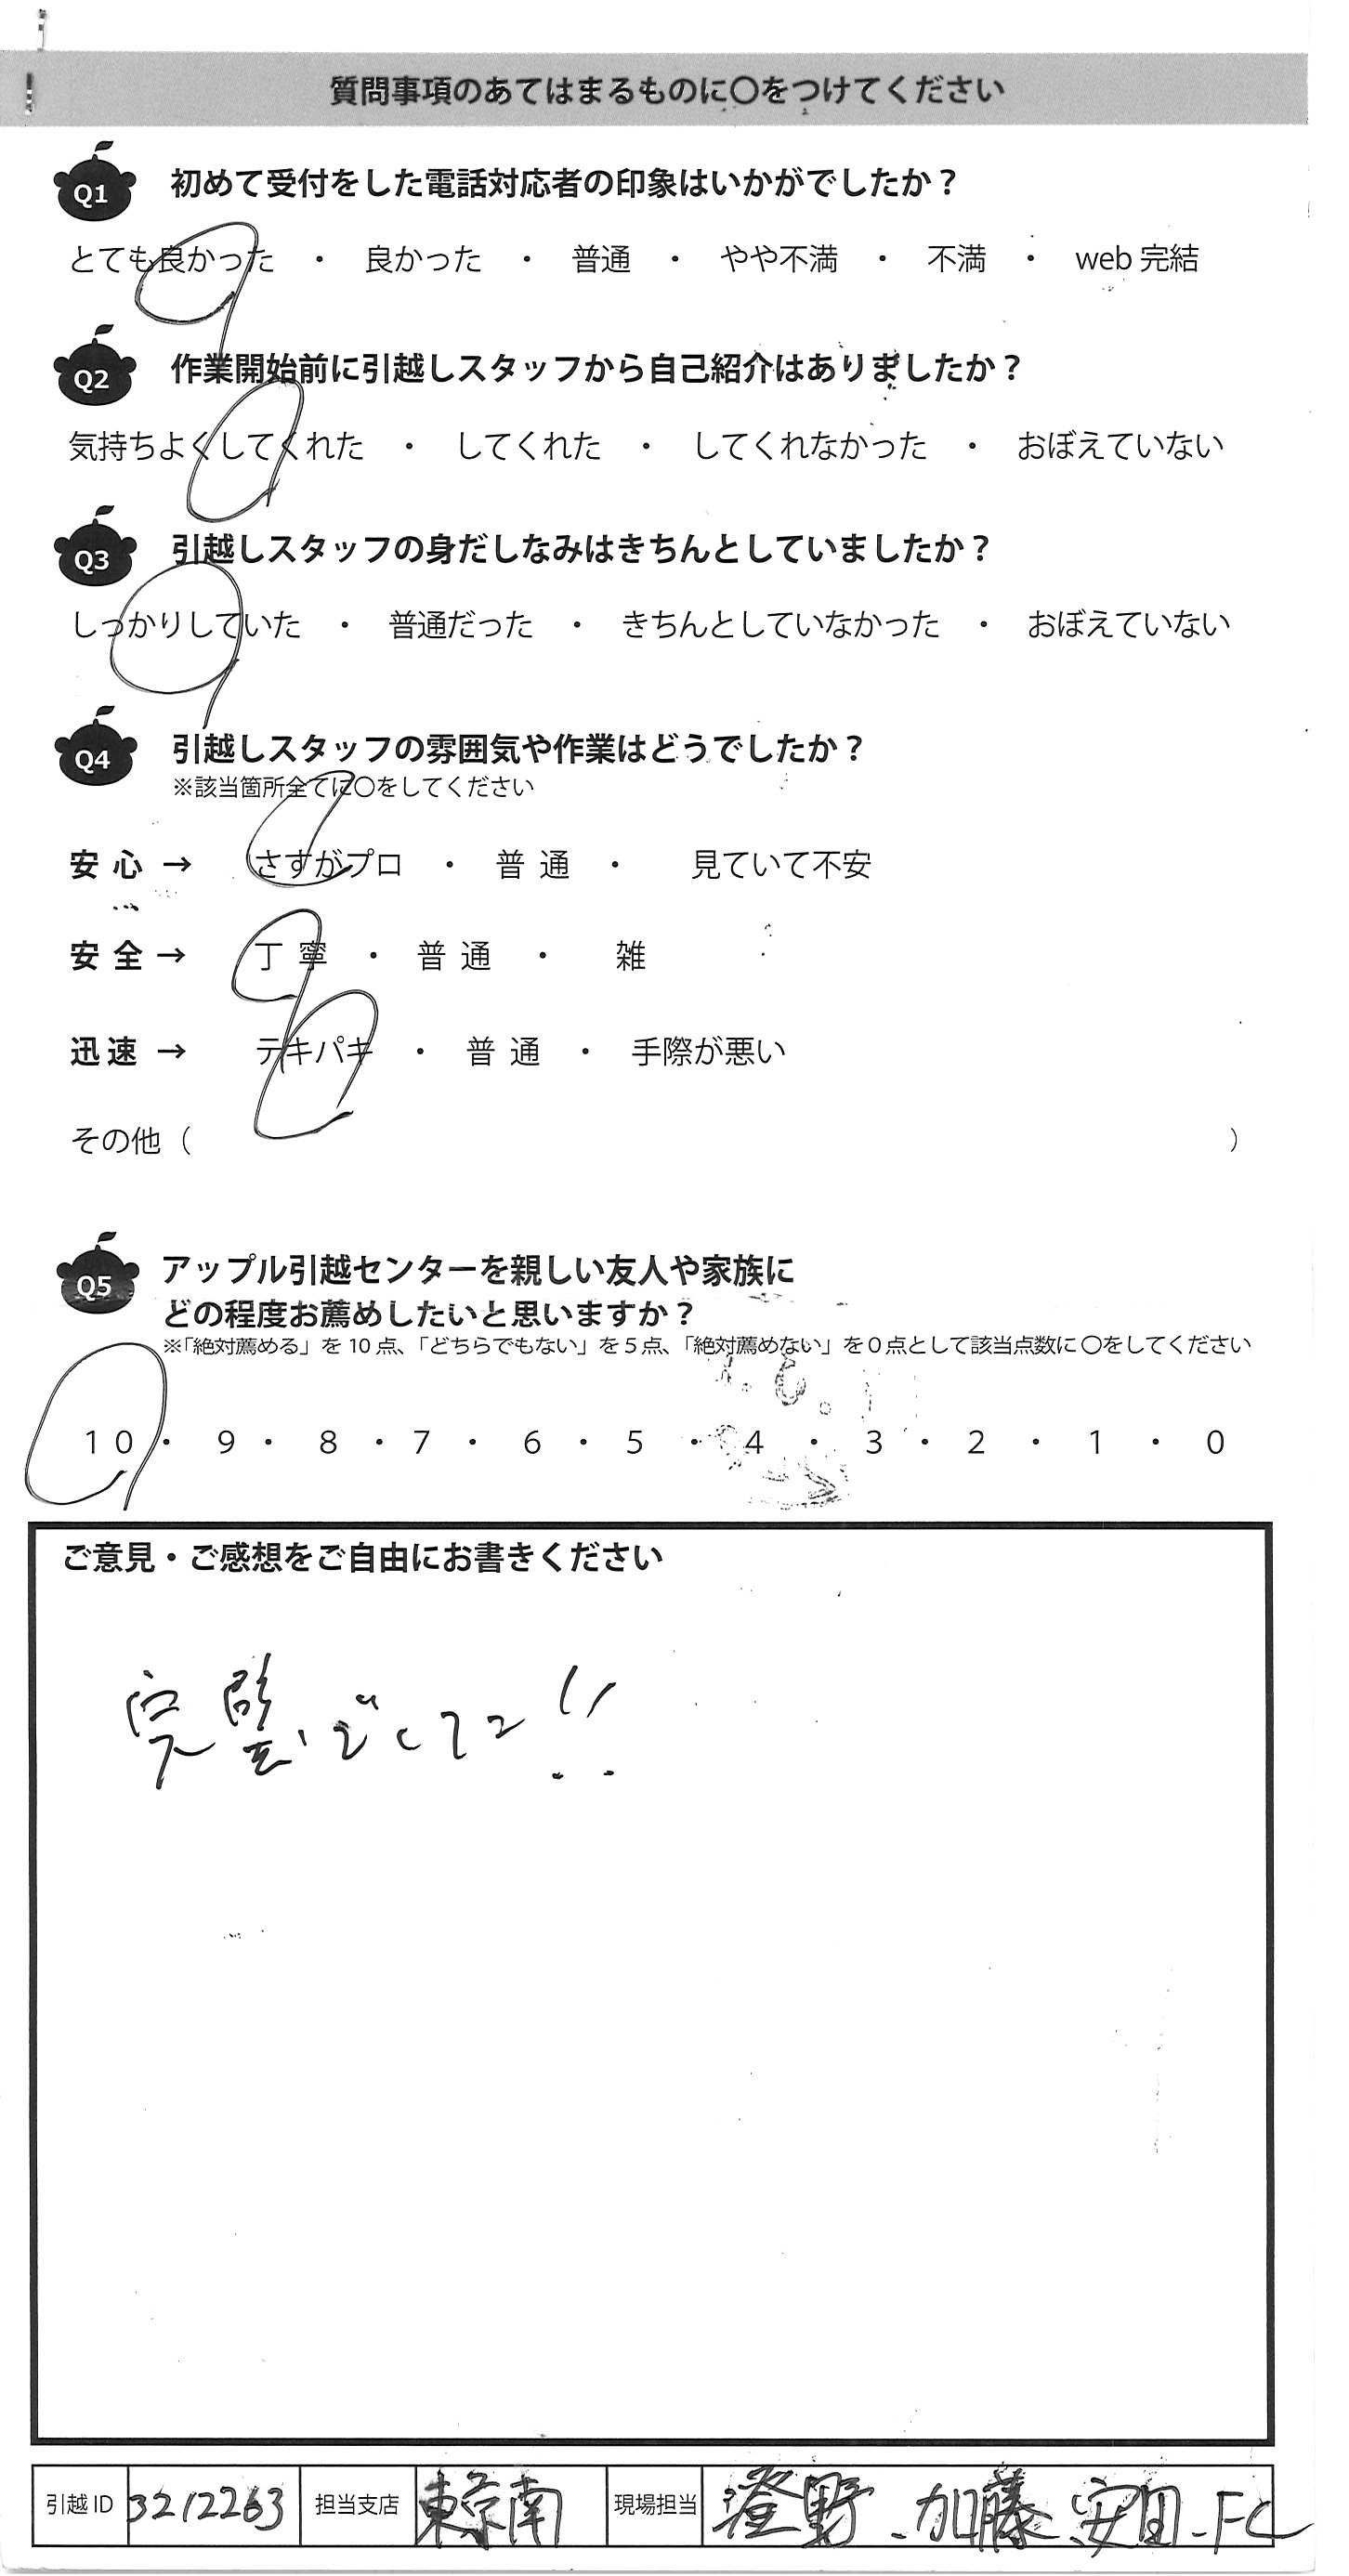 質問事項のあてはまるものに〇をつけてください
Q1 初めて受付をした電話対応者の印象はいかがでしたか？
とても良かった ・ 良かった ・ 普通 ・ やや不満 ・ 不満 ・ web 完結
Q2 作業開始前に引越しスタッフから自己紹介はありましたか？
気持ちよくしてくれた ・ してくれた ・ してくれなかった ・ おぼえていない
Q3 引越しスタッフの身だしなみはきちんとしていましたか？
しっかりしていた ・ 普通だった ・ きちんとしていなかった ・ おぼえていない
Q4 引越しスタッフの雰囲気や作業はどうでしたか？
※該当箇所全てに〇をしてください
安心 → さすがプロ ・ 普通 ・ 見ていて不安
安全 → 丁寧 ・ 普通 ・ 雑
迅速 → テキパキ ・ 普通 ・ 手際が悪い
その他（ ）
Q5 アップル引越センターを親しい友人や家族に
どの程度お薦めしたいと思いますか？
※「絶対薦める」を 10 点、「どちらでもない」を 5 点、「絶対薦めない」を 0 点として該当点数に 〇をしてください
10 ・ 9 ・ 8 ・ 7 ・ 6 ・ 5 ・ 4 ・ 3 ・ 2 ・ 1 ・ 0
ご意見・ご感想をご自由にお書きください
完璧でした!!
引越 ID 3212263 担当支店 東京南 現場担当 澄野、加藤、安田、FC